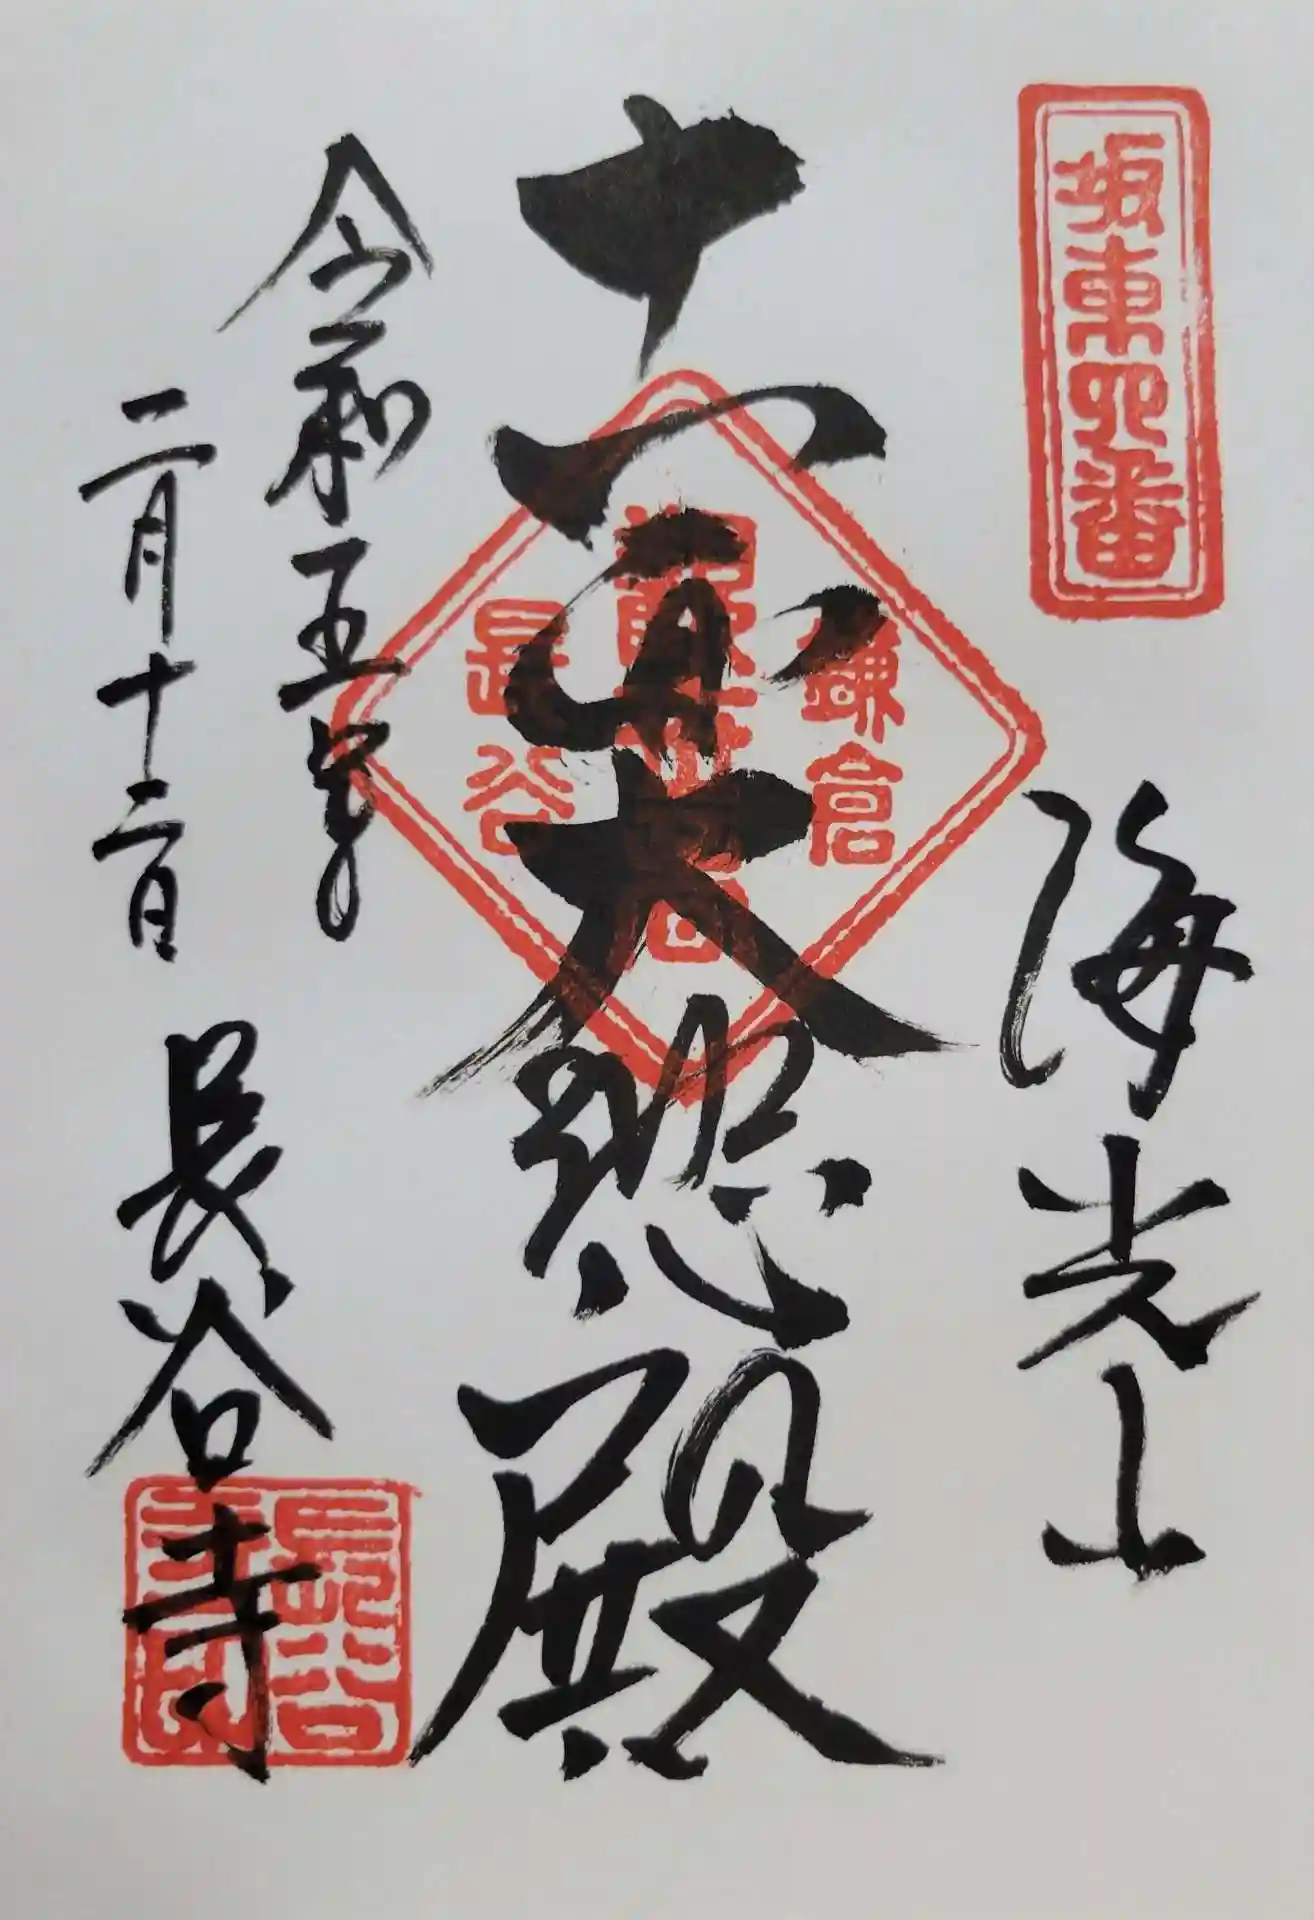 坂東四番
海光山
十一面大悲殿
鎌倉
観世音
長谷
令和五年
二月十二日
長谷寺
長谷
寺印